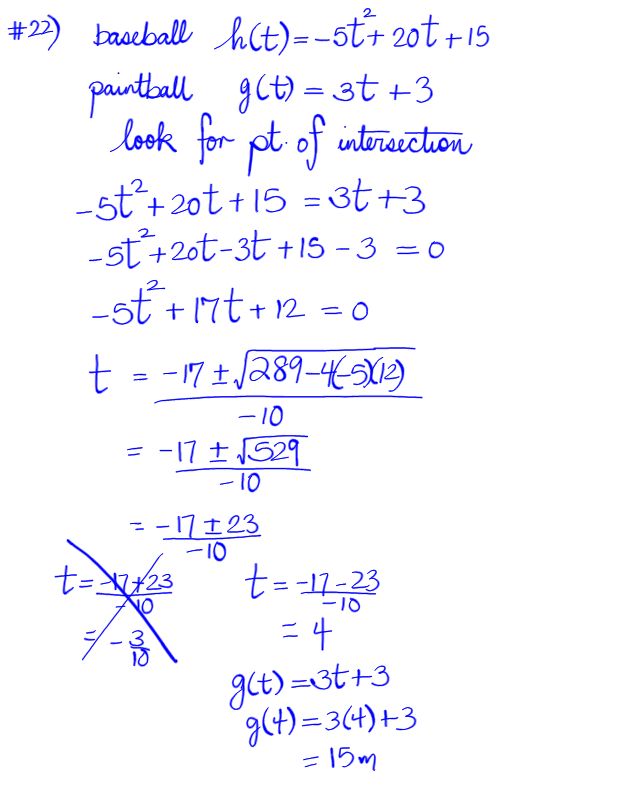 #22) baseball h(t)=-5t²+20t+15
paintball g(t)=3t+3
look for pt. of intersection
-5t²+20t+15=3t+3
-5t²+20t-3t+15-3=0
-5t²+17t+12=0
t = (-17±√(289-4(-5)(12)))/-10
= (-17±√529)/-10
= (-17±23)/-10
t=(-17+23)/-10 t=(-17-23)/-10
= -3/10 = 4
g(t)=3t+3
g(4)=3(4)+3
=15m